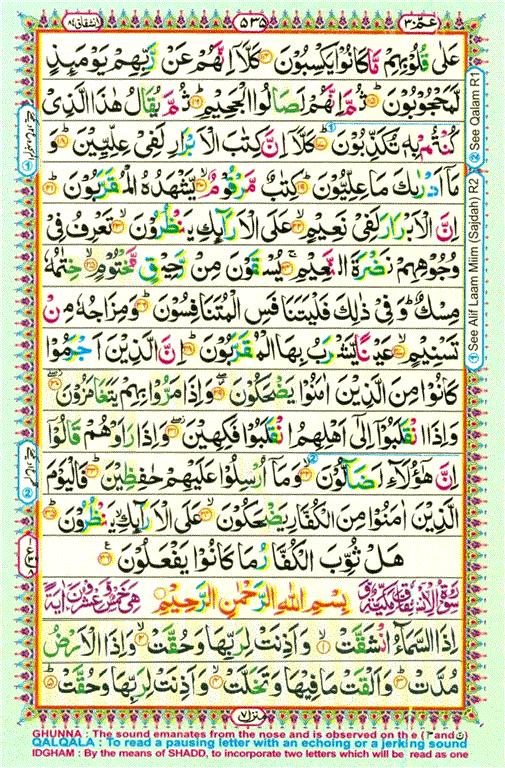 عمّ ٣٠
٥٣٥
انشقاق ٨٤
عَلٰى قُلُوْبِهِمْ مَّا كَانُوْا يَكْسِبُوْنَ ﴿١٤﴾ كَلَّاۤ اِنَّهُمْ عَنْ رَّبِّهِمْ يَوْمَىِٕذٍ
لَّمَحْجُوْبُوْنَ ﴿١٥﴾ ثُمَّ اِنَّهُمْ لَصَالُوا الْجَحِيْمِ ﴿١٦﴾ ثُمَّ يُقَالُ هٰذَا الَّذِىْ
كُنْتُمْ بِهٖ تُكَذِّبُوْنَ ﴿١٧﴾ كَلَّاۤ اِنَّ كِتٰبَ الْاَبْرَارِ لَفِىْ عِلِّيِّيْنَ ﴿١٨﴾ وَ
مَاۤ اَدْرٰىكَ مَا عِلِّيُّوْنَ ﴿١٩﴾ كِتٰبٌ مَّرْقُوْمٌ ﴿٢٠﴾ يَّشْهَدُهُ الْمُقَرَّبُوْنَ ﴿٢١﴾
اِنَّ الْاَبْرَارَ لَفِىْ نَعِيْمٍ ﴿٢٢﴾ عَلَى الْاَرَآىِٕكِ يَنْظُرُوْنَ ﴿٢٣﴾ تَعْرِفُ فِىْ
وُجُوْهِهِمْ نَضْرَةَ النَّعِيْمِ ﴿٢٤﴾ يُسْقَوْنَ مِنْ رَّحِيْقٍ مَّخْتُوْمٍ ﴿٢٥﴾ خِتٰمُهٗ
مِسْكٌ وَفِىْ ذٰلِكَ فَلْيَتَنَافَسِ الْمُتَنَافِسُوْنَ ﴿٢٦﴾ وَمِزَاجُهٗ مِنْ
تَسْنِيْمٍ ﴿٢٧﴾ عَيْنًا يَّشْرَبُ بِهَا الْمُقَرَّبُوْنَ ﴿٢٨﴾ اِنَّ الَّذِيْنَ اَجْرَمُوْا
كَانُوْا مِنَ الَّذِيْنَ اٰمَنُوْا يَضْحَكُوْنَ ﴿٢٩﴾ وَاِذَا مَرُّوْا بِهِمْ يَتَغَامَزُوْنَ ﴿٣٠﴾
وَاِذَا انْقَلَبُوْۤا اِلٰۤى اَهْلِهِمُ انْقَلَبُوْا فَكِهِيْنَ ﴿٣١﴾ وَاِذَا رَاَوْهُمْ قَالُوْۤا
اِنَّ هٰۤؤُلَآءِ لَضَآلُّوْنَ ﴿٣٢﴾ وَمَاۤ اُرْسِلُوْا عَلَيْهِمْ حٰفِظِيْنَ ﴿٣٣﴾ فَالْيَوْمَ
الَّذِيْنَ اٰمَنُوْا مِنَ الْكُفَّارِ يَضْحَكُوْنَ ﴿٣٤﴾ عَلَى الْاَرَآىِٕكِ يَنْظُرُوْنَ ﴿٣٥﴾
هَلْ ثُوِّبَ الْكُفَّارُ مَا كَانُوْا يَفْعَلُوْنَ ﴿٣٦﴾
سُوْرَةُ الْاِنْشِقَاقِ مَكِّيَّةٌ وَّ
بِسْمِ اللّٰهِ الرَّحْمٰنِ الرَّحِيْمِ
هِىَ خَمْسٌ وَّعِشْرُوْنَ اٰيَةً
اِذَا السَّمَآءُ انْشَقَّتْ ﴿١﴾ وَاَذِنَتْ لِرَبِّهَا وَحُقَّتْ ﴿٢﴾ وَاِذَا الْاَرْضُ
مُدَّتْ ﴿٣﴾ وَاَلْقَتْ مَا فِيْهَا وَتَخَلَّتْ ﴿٤﴾ وَاَذِنَتْ لِرَبِّهَا وَحُقَّتْ ﴿٥﴾
منزل ٧
② See Qalam R1
① See Alif Laam Miim (Sajdah) R2
GHUNNA : The sound emanates from the nose and is observed on the (م and ن)
QALQALA : To read a pausing letter with an echoing or a jerking sound
IDGHAM : By the means of SHADD, to incorporate two letters which will be read as one